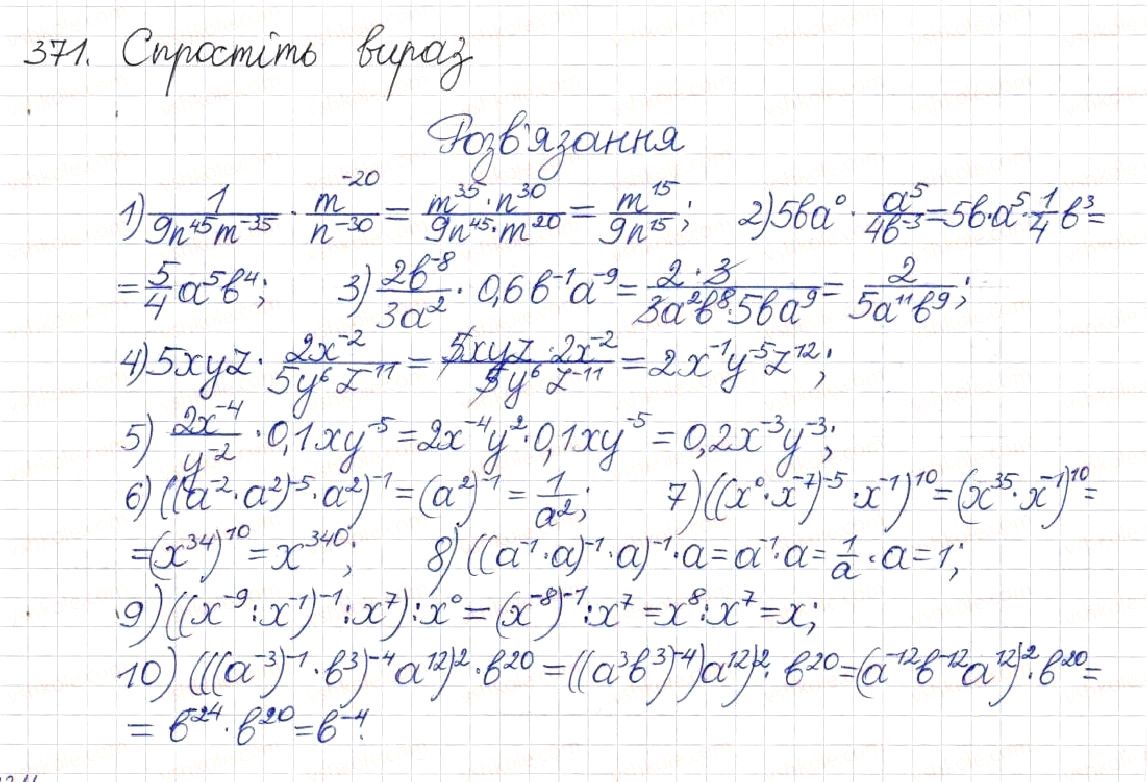 371. Спростіть вираз
Розв'язання
1) \frac{1}{9n^{45}m^{-35}} · \frac{m^{-20}}{n^{-30}} = \frac{m^{35}·n^{30}}{9n^{45}·m^{20}} = \frac{m^{15}}{9n^{15}}; 2) 5ba^0 · \frac{a^5}{4b^{-3}} = 5b·a^5·\frac{1}{4}b^3 =
= \frac{5}{4}a^5b^4; 3) \frac{2b^{-8}}{3a^2} · 0,6b^{-1}a^{-9} = \frac{2·3}{3a^2b^8·5ba^9} = \frac{2}{5a^{11}b^9};
4) 5xyz · \frac{2x^{-2}}{5y^6z^{-11}} = \frac{5xyz·2x^{-2}}{5y^6z^{-11}} = 2x^{-1}y^{-5}z^{12};
5) \frac{2x^{-4}}{y^{-2}} · 0,1xy^{-5} = 2x^{-4}y^2·0,1xy^{-5} = 0,2x^{-3}y^{-3};
6) ((a^{-2}·a^2)^{-5}·a^2)^{-1} = (a^2)^{-1} = \frac{1}{a^2}; 7) ((x^0·x^{-7})^{-5}·x^{-1})^{10} = (x^{35}·x^{-1})^{10} =
= (x^{34})^{10} = x^{340}; 8) ((a^{-1}·a)^{-1}·a)^{-1}·a = a^{-1}·a = \frac{1}{a}·a = 1;
9) ((x^{-9}:x^{-1})^{-1}:x^7):x^0 = (x^{-8})^{-1}:x^7 = x^8:x^7 = x;
10) (((a^{-3})^{-1}·b^3)^{-4}a^{12})^2·b^{20} = ((a^3b^3)^{-4})a^{12})^2·b^{20} = (a^{-12}b^{-12}a^{12})^2·b^{20} =
= b^{-24}·b^{20} = b^{-4}.